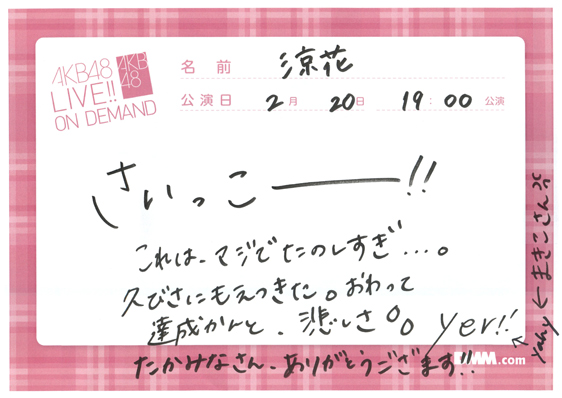 AKB48
LIVE!!
ON DEMAND
AKB
48
名前 涼花
公演日 2月 20日 19:00 公演
さいっこー――!!
これは、マジでたのしすぎ...。
久びさにもえつきた。おわって
達成かんと、悲しさ%
yer!!
たかみなさん、ありがとうござます!!
DMM.com
yahy ← まきこさん